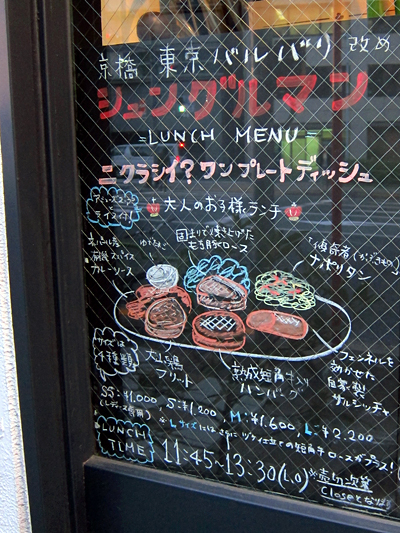 京橋 東京バルバリ 改め
シェングルマン
=LUNCH MENU=
ニクラシイ?ワンプレートディッシュ
ライス付!
大人のお子様ランチ
ゆでたまご
固まりで焼き上げた
もち豚ロース
スパイス
カレーソース
ナポリタン
サイズは
4種類
大山鶏
フリット
熟成短角牛入り
ハンバーグ
フェンネルを
効かせた
自家製
サルシッチャ
SS:¥1.000 S:¥1.200 M:¥1.600 L:¥2.200
(レディース専用)
※Lサイズにはさらに 仕立ての短角牛ロースがプラス!
LUNCH
TIME
11:45~13:30(L.O) ※売切次第
Closeとなり